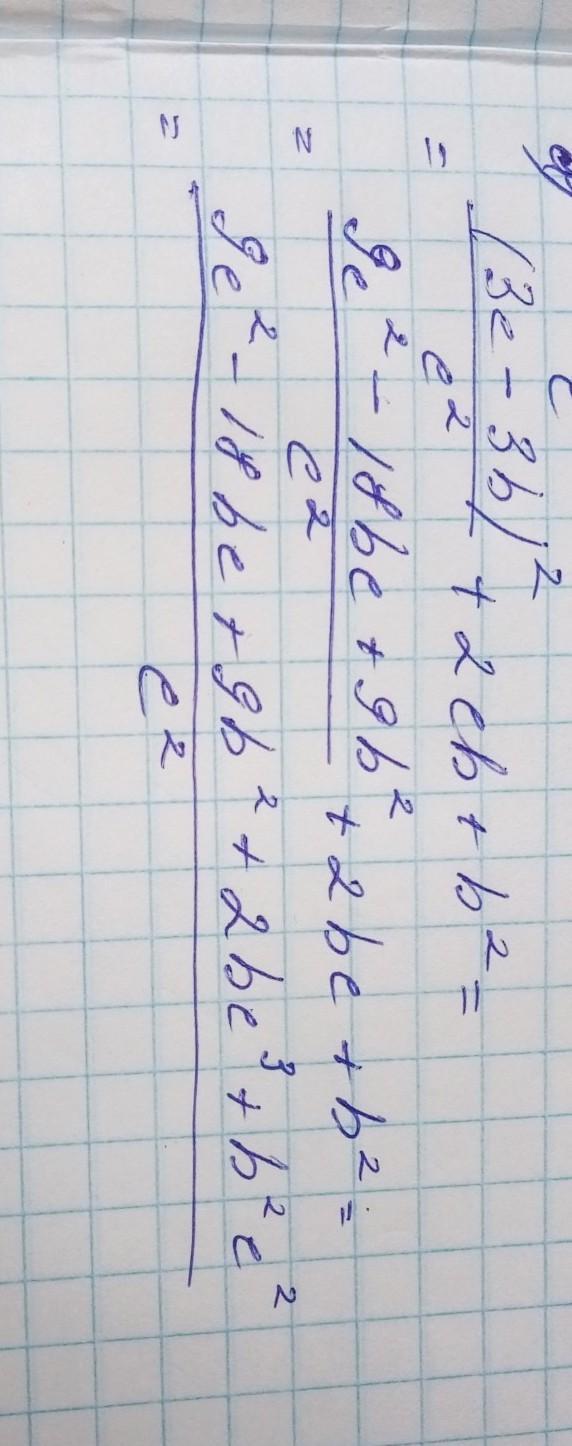 = (3c - 3b)² / c² + 2cb + b² =
= 9c² - 18bc + 9b² / c² + 2bc + b² =
= 9c² - 18bc + 9b² + 2bc³ + b²c² / c²